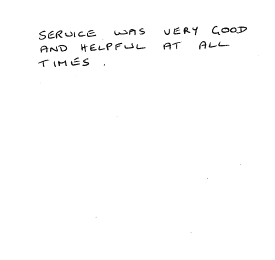 SERVICE WAS VERY GOOD
AND HELPFUL AT ALL
TIMES .